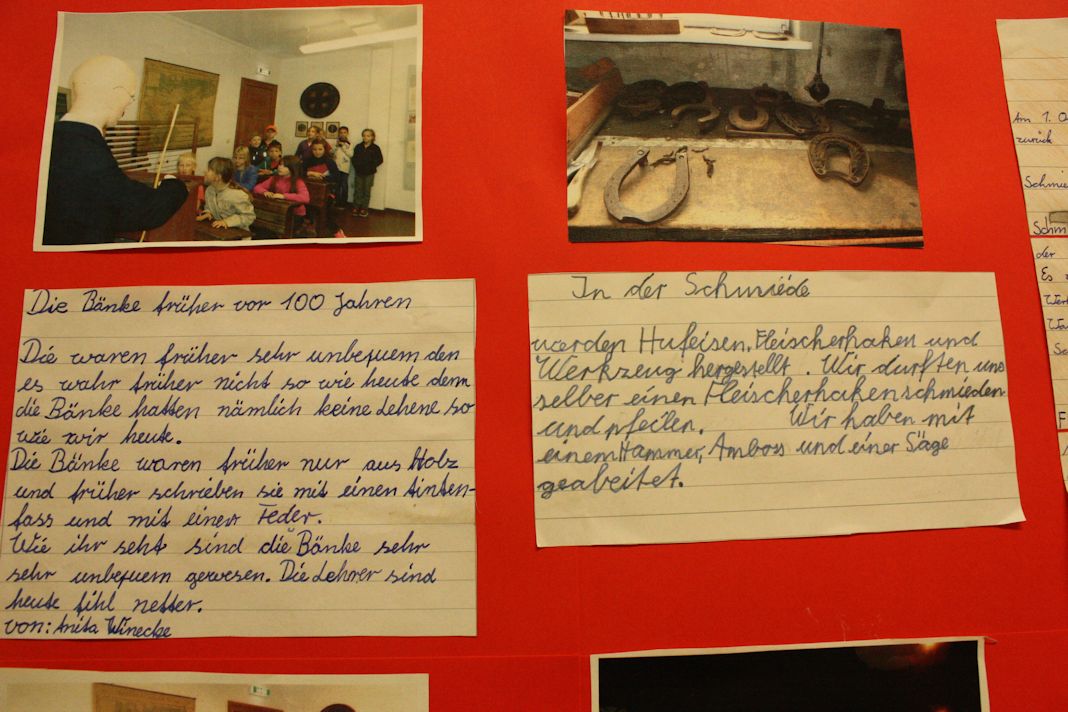 Die Bänke früher vor 100 Jahren
Die waren früher sehr unbequem den
es wahr früher nicht so wie heute denn
die Bänke hatten nämlich keine Lehene so
wie wir heute.
Die Bänke waren früher nur aus Holz
und früher schrieben sie mit einen tinten-
fass und mit einer Feder.
Wie ihr seht sind die Bänke sehr
sehr unbequem gewesen. Die Lehrer sind
heute fihl netter.
von: Anita Winecke
In der Schmiede
werden Hufeisen, Fleischerhaken und
Werkzeug hergestellt. Wir durften uns
selber einen Fleischerhaken schmieden
und pfeilen. Wir haben mit
einem Hammer, Amboss und einer Säge
geabeitet.
Am 1. O
zurück
Schmie
Schm
der
Es